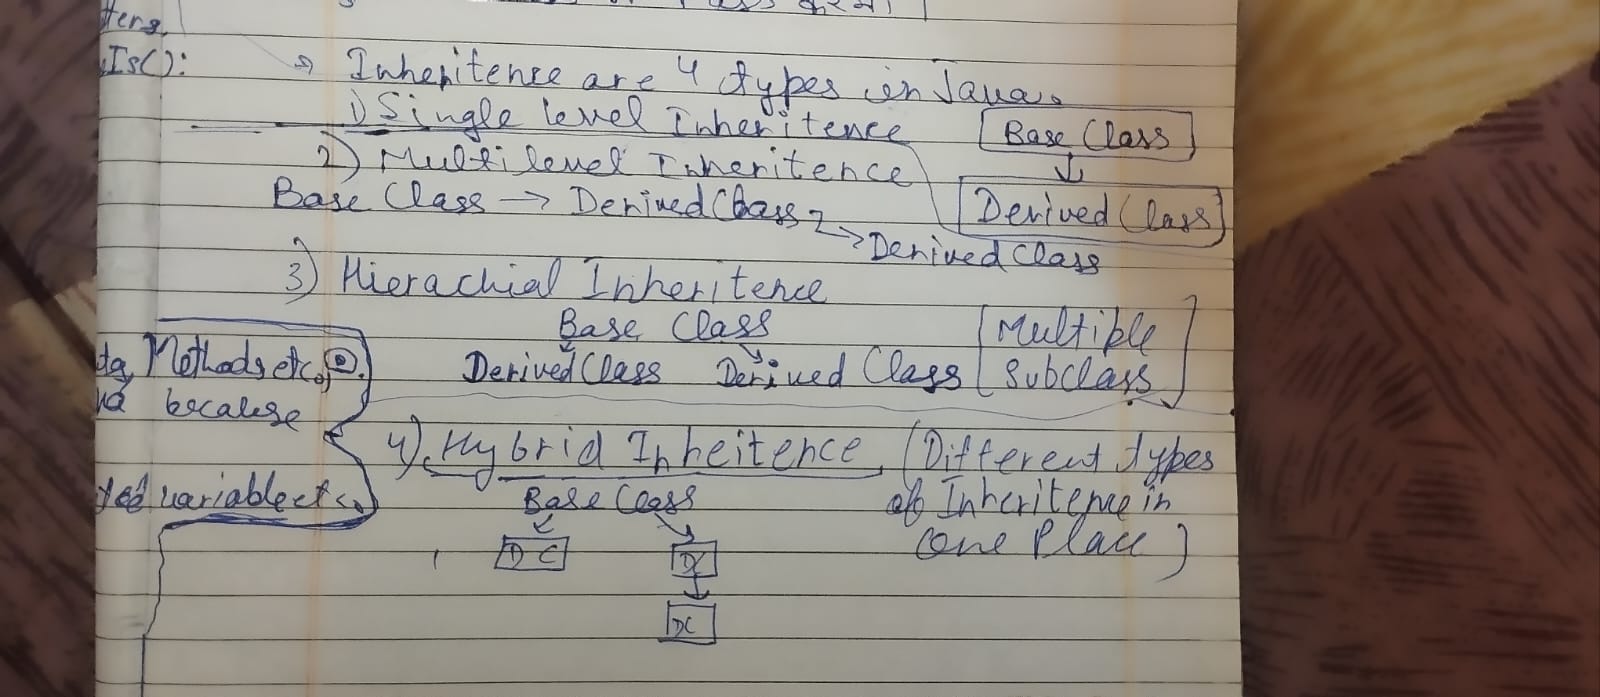 Is():
→ Inheritence are 4 types in Java.
1) Single level Inheritence
Base Class
↓
Derived Class
2) Multilevel Inheritence
Base Class → Derived Class
→ Derived Class
3) Hierachial Inheritence
Base Class
Derived Class Derived Class
[Multiple
Subclass]
Methods etc.
because
variable etc.
4) Hybrid Inheitence (Different types
of Inheritence in
One Place)
Base Class
DC DC
DC